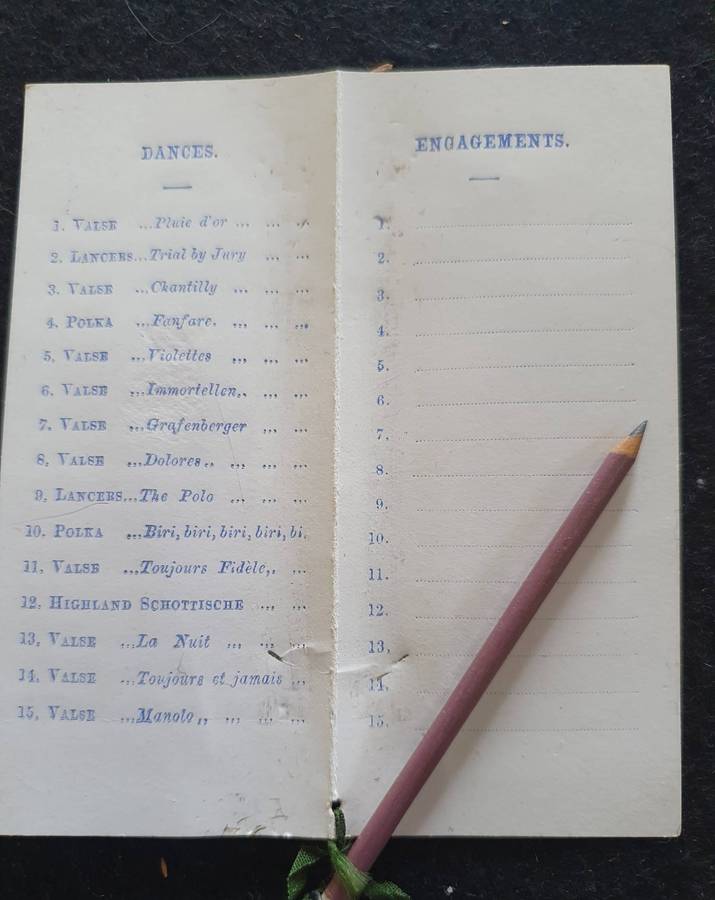 DANCES.
1. VALSE ...Pluie d'or ... ... ...
2. LANCERS...Trial by Jury ... ...
3. VALSE ...Chantilly ... ... ...
4. POLKA ...Fanfare. ... ... ...
5. VALSE ...Violettes ... ... ...
6. VALSE ...Immortellen.. ... ...
7. VALSE ...Grafenberger ... ...
8. VALSE ...Dolores.. ... ... ...
9. LANCERS...The Polo ... ... ...
10. POLKA ...Biri, biri, biri, biri, bi.
11. VALSE ...Toujours Fidèle,. ...
12. HIGHLAND SCHOTTISCHE ... ...
13. VALSE ...La Nuit ... ... ...
14. VALSE ...Toujours et jamais ...
15. VALSE ...Manolo,, ... ... ...
ENGAGEMENTS.
1.
2.
3.
4.
5.
6.
7.
8.
9.
10.
11.
12.
13.
14.
15.